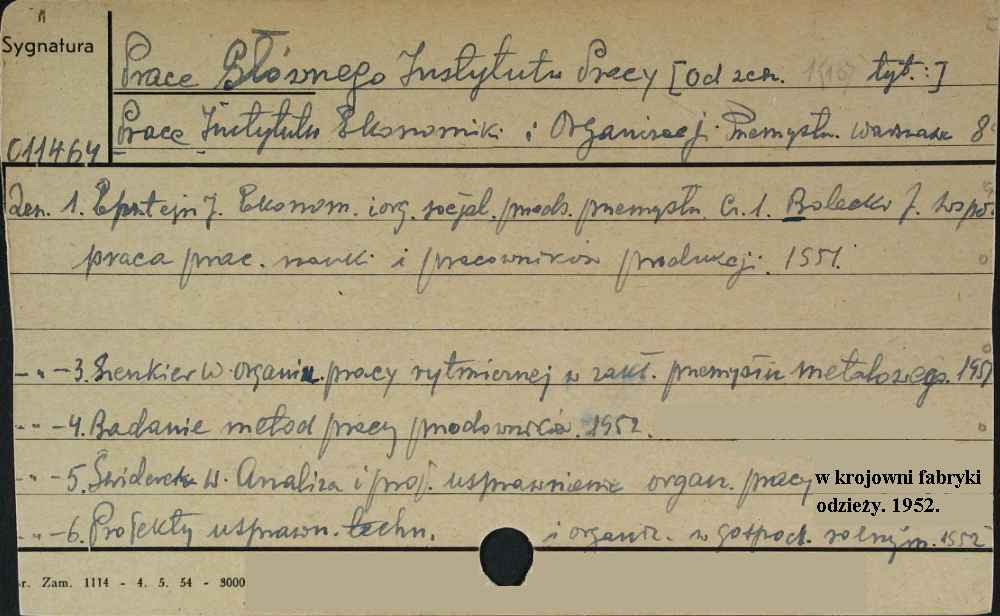 Sygnatura
Prace Głównego Instytutu Pracy [Od zesz. 1(15) tyt.:]
Prace Instytutu Ekonomiki i Organizacji Przemysłu. Warszawa 8°
011464
Zesz. 1. Epsztejn J. Ekonom. i org. socjal. przeds. przemysłu. Cz. 1. Bolecko J. Współ-
praca prac. nauki i pracowników produkcji. 1951.
- " - 3. Szenkier W. Organiz. pracy rytmicznej w zakł. przemysłu metalowego. 1951
- " - 4. Badanie metod pracy przodowników. 1952.
- " - 5. Świderek W. Analiza i proj. usprawnienia organ. pracy w krojowni fabryki
odzieży. 1952.
- " - 6. Projekty usprawn. techn. i organiz. w gospod. rolnym. 1952
r. Zam. 1114 - 4. 5. 54 - 3000